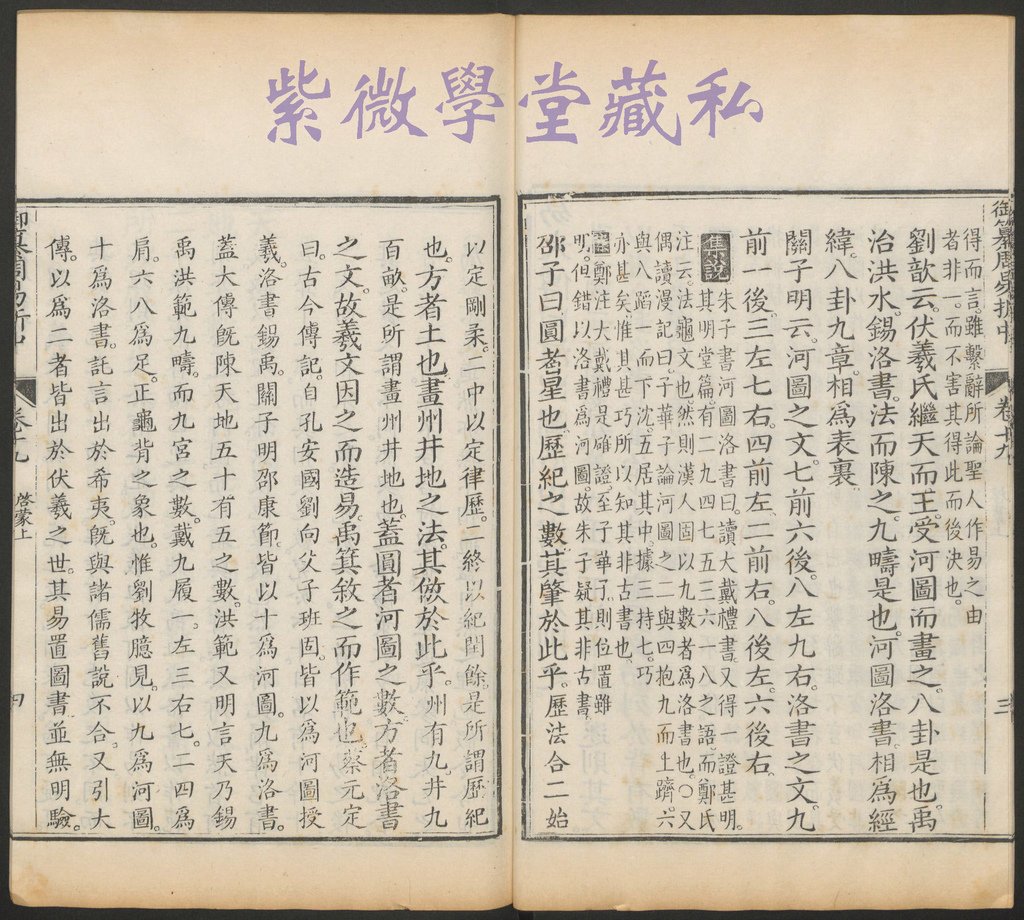 紫微學堂藏私
御纂周易折中 卷十九 三
得而言。雖繫辭所論聖人作易之由
者非一。而不害其得此而後決也。
劉歆云。伏羲氏繼天而王。受河圖而畫之。八卦是也。禹
治洪水。錫洛書。法而陳之。九疇是也。河圖洛書。相爲經
緯。八卦九章。相爲表裏。
關子明云。河圖之文。七前六後。八左九右。洛書之文。九
前一後。三左七右。四前左。二前右。八後左。六後右。
集說 朱子書河圖洛書曰。讀大戴禮書。又得一證甚明。
其明堂篇有二九四七五三六一八之語。而鄭氏
注云。法龜文也。然則漢人固以九數者爲洛書也。○又
偶讀漫記曰。子華子論河圖之二與四抱九而上躋。六
與八蹈一而下沈。五居其中。據三持七。巧
亦甚矣。惟其甚巧。所以知其非古書也。
鄭注大戴禮是確證。至子華子。則位置雖
明。但錯以洛書爲河圖。故朱子疑其非古書。
邵子曰。圓者星也。歷紀之數。其肇於此乎。歷法合二始
以定剛柔。二中以定律歷。二終以紀閏餘。是所謂歷紀
也。方者土也。畫州井地之法。其倣於此乎。州有九。井九
百畝。是所謂畫州井地也。蓋圓者河圖之數。方者洛書
之文。故羲文因之而造易。禹箕敘之而作範也。蔡元定
曰。古今傳記。自孔安國劉向父子班固。皆以爲河圖授
羲。洛書錫禹。關子明邵康節皆以十爲河圖。九爲洛書。
蓋大傳旣陳天地五十有五之數。洪範又明言天乃錫
禹洪範九疇。而九宮之數。戴九履一。左三右七。二四爲
肩。六八爲足。正龜背之象也。惟劉牧臆見。以九爲河圖。
十爲洛書。託言出於希夷。旣與諸儒舊說不合。又引大
傳。以爲二者皆出於伏羲之世。其易置圖書。並無明驗。
御纂周易折中 卷十九 啓蒙上 四